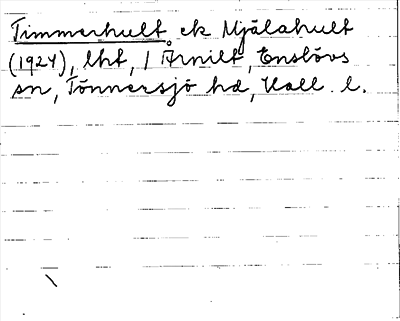 Timmerhult ek Mjälahult
(1924), lht, / Årnilt, Enslövs
sn, Tönnersjö hd, Hall. l.